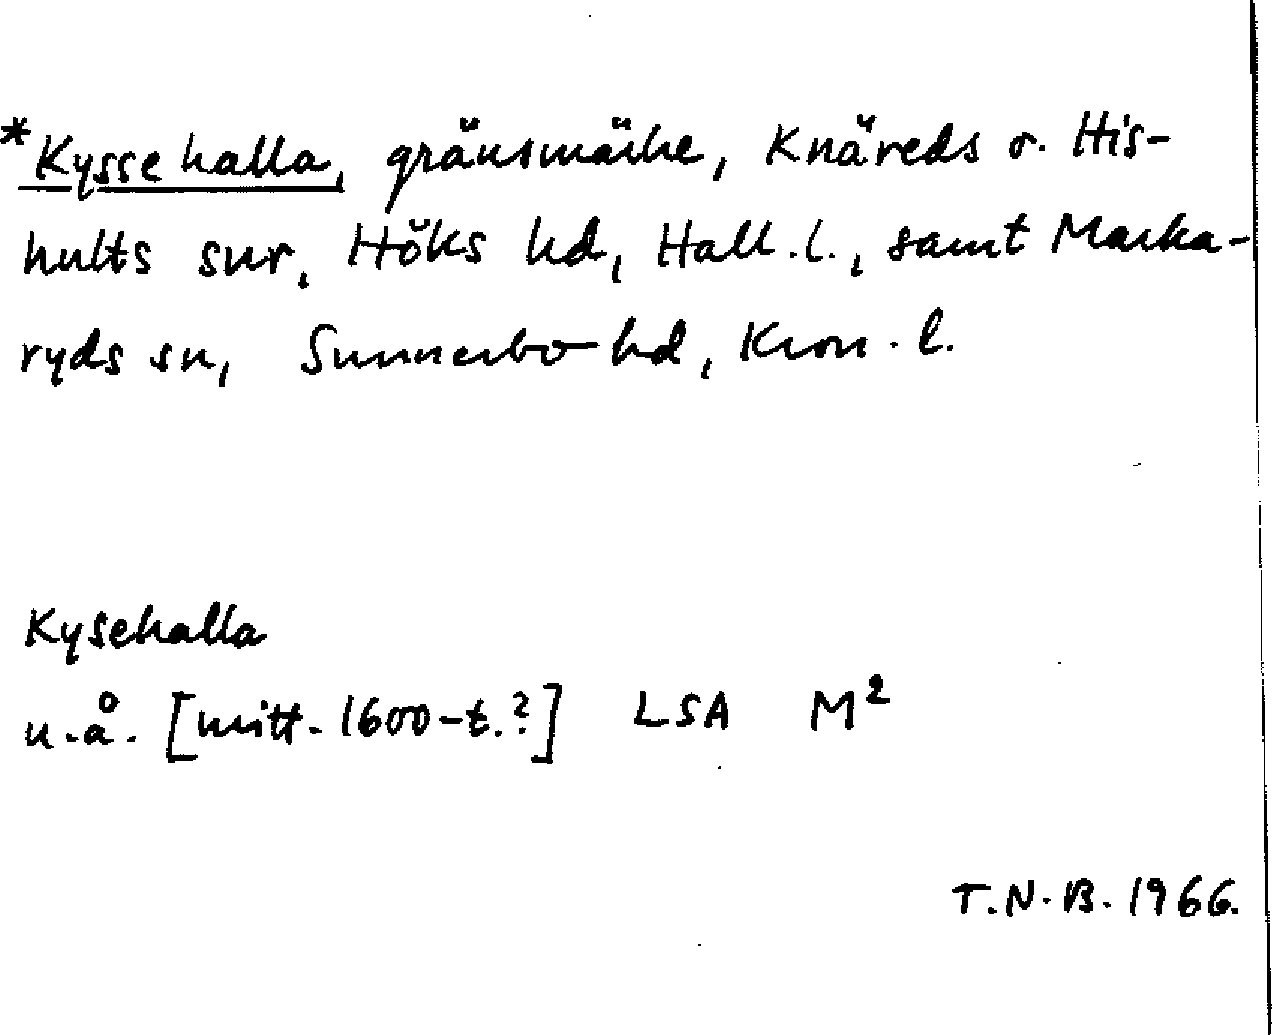 *Kyssehalla, gränsmärke, Knäreds o. His-
hults snr, Höks hd, Hall.l., samt Marka-
ryds sn, Sunnerbo hd, Kron.l.
Kysehalla
u.å. [mitt. 1600-t.?] LSA M²
T.N.B. 1966.